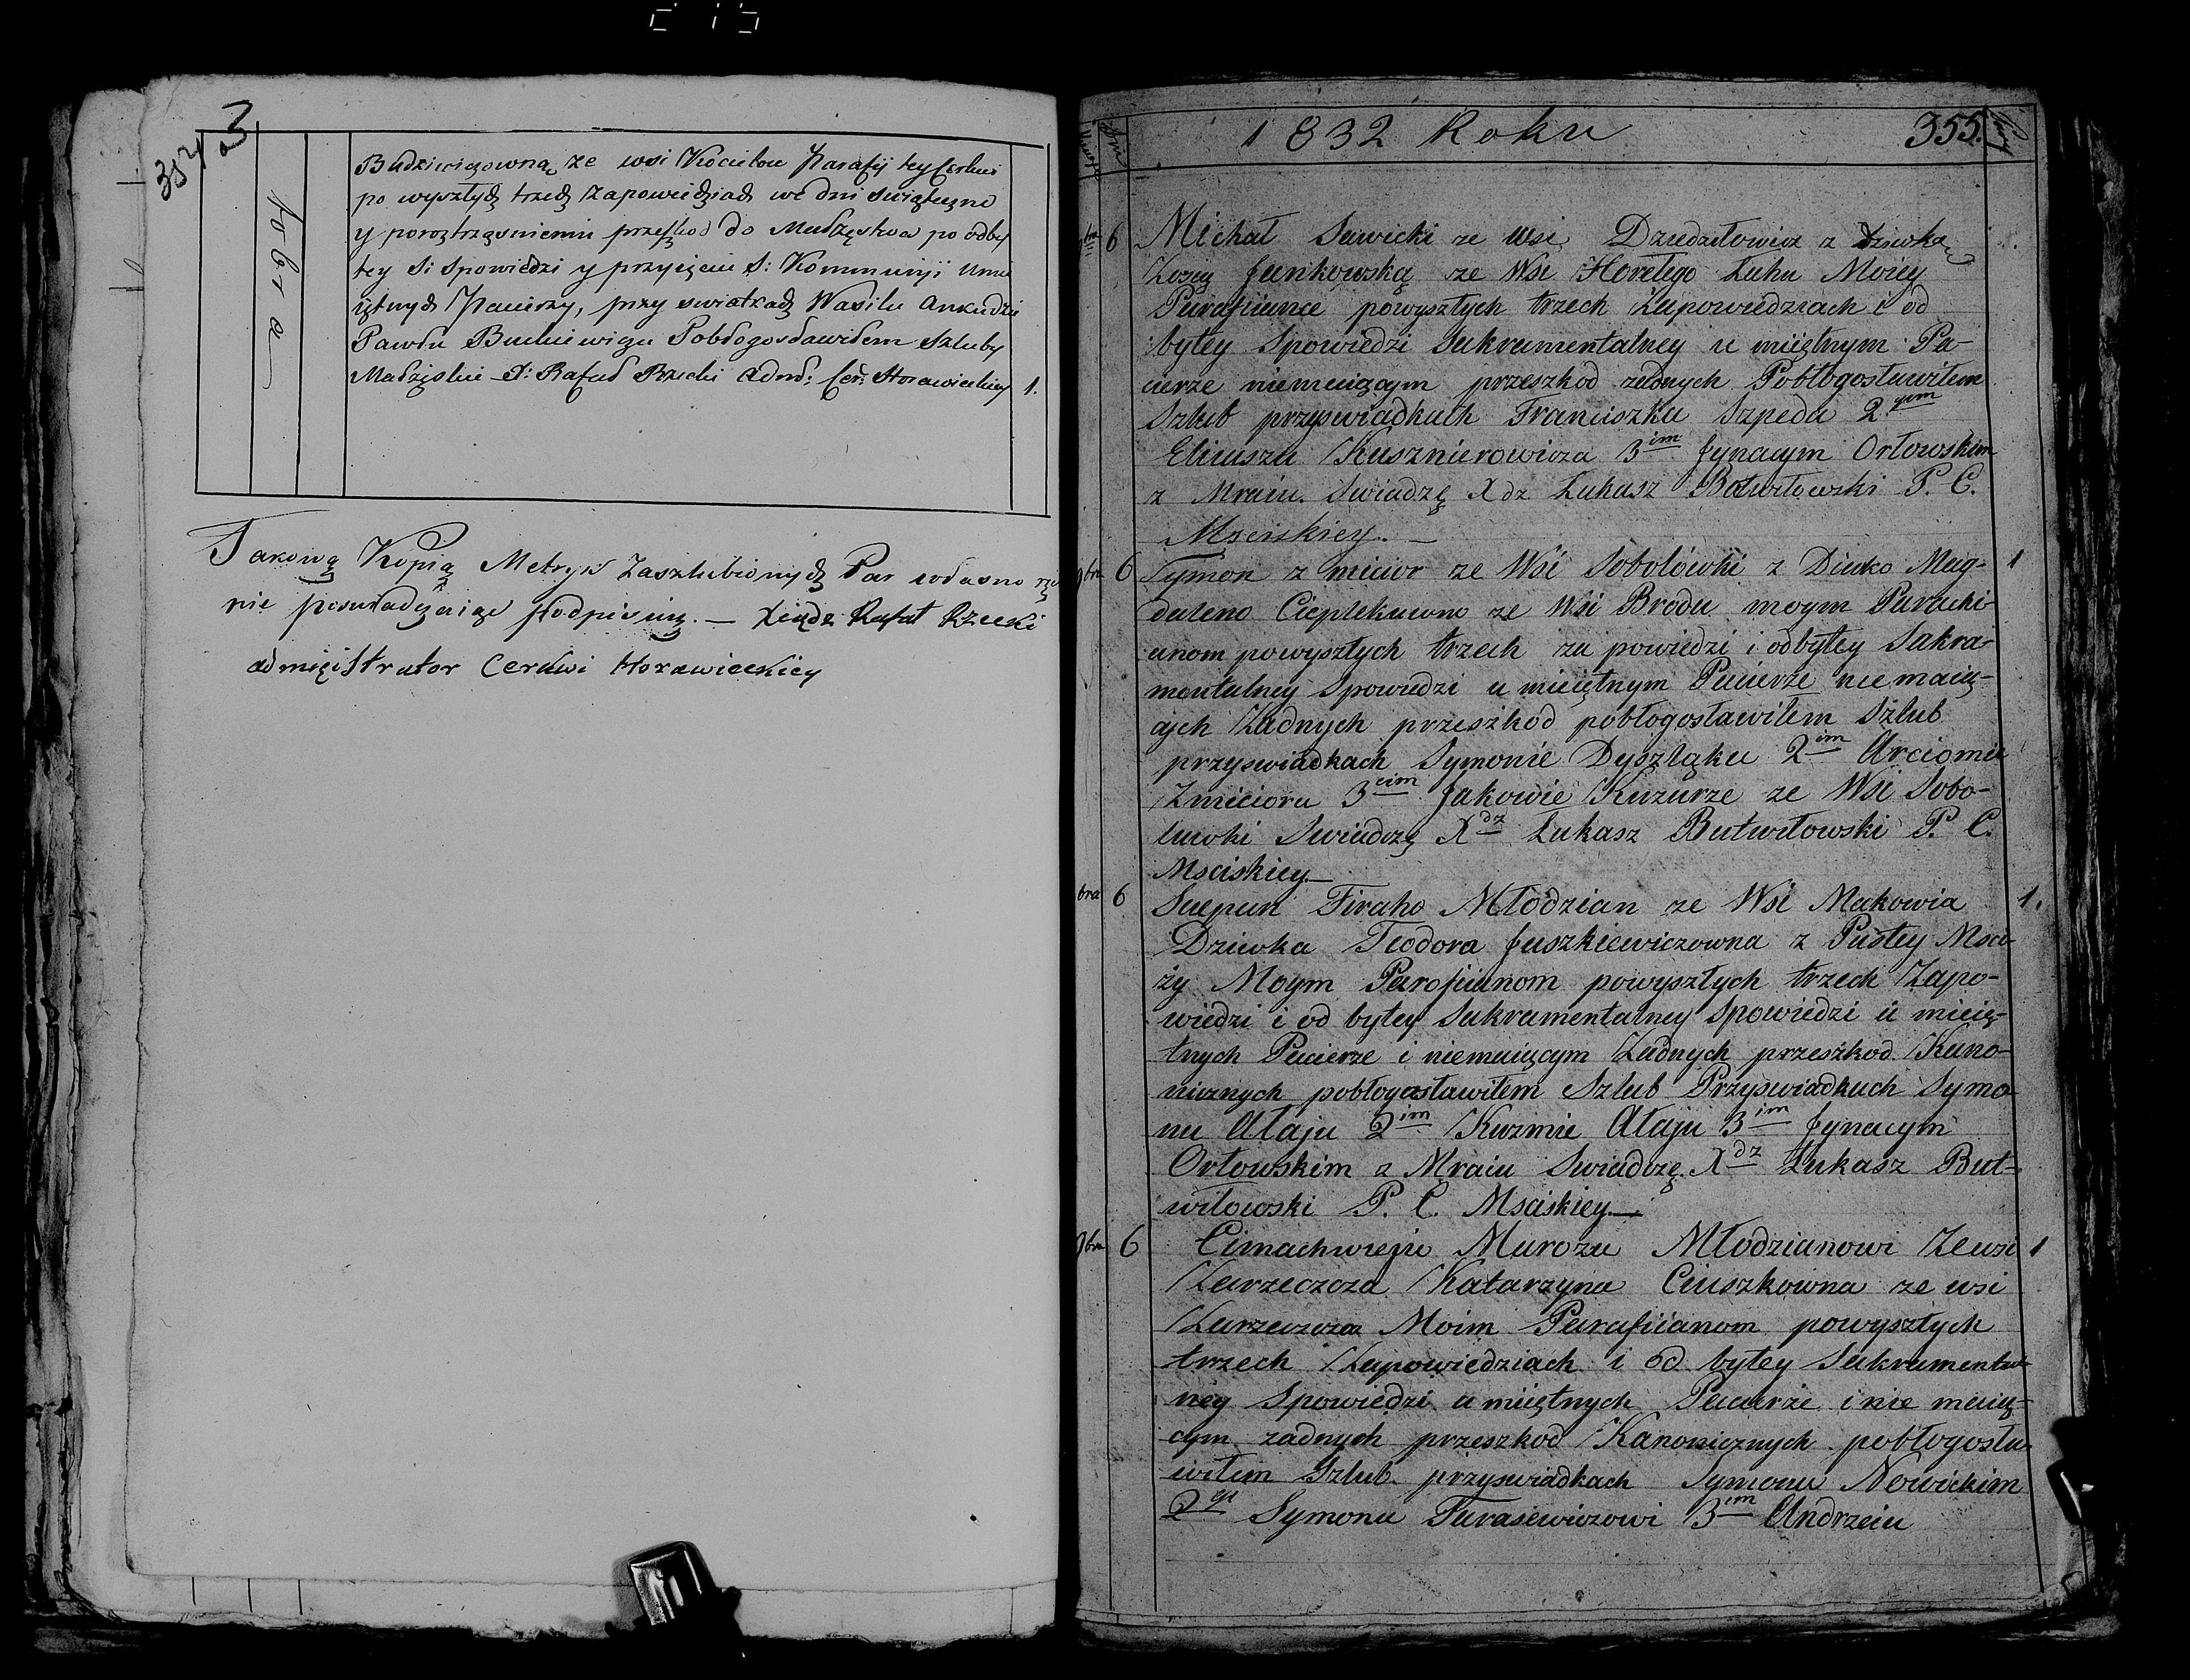 354
3
Budziwiczowną ze wsi Kocielou Parafij tey Cerkwi
po wyszłych trzech zapowiedziach we dni swiąteczne
y poroztrząsnieniu przeszkod do Małżęstwa po odby
tey S: Spowiedzi y przyięciu S: Kommunij umie
iętnych Pacierzy, przy swiatkach Wasilu
Pawłu Pobłogosławiłem Szluby
Małżęskie X: Rafał Rzecki Admd: Cer: Horawieckiey 1.
Takową Kopią Metryk Zaszlubionych Par własno rę
nie poswiadczaiąc podpisuię. — Xiądz Rafał Rzecki
administrator Cerkwi Horawieckiey
1832 Roku 355.
6 Michał Sawicki ze wsi Dziedziłowicz z dziewką
Zozią Jankowską ze Wsi Horełego Łuha Moiey
Parafiiance powyszłych trzech Zapowiedziach i od
bytey Spowiedzi Sakramentalney u miiętnym Pa-
cierze niemaiącym przeszkod żadnych Pobłogosławiłem
Szlub przyswiadkach Franciszku Szpeda 2gim
Eliaszu Kusznierowicza 3im Jgnacym Orłowskim
z Mraiu. Swiadzę Xdz Łukasz Butwiłowski P. C.
Msciskiey. —
9bra 6 Symon z micior ze Wsi Sobolówki z Diwko Mag- 1
daleno Cieplekawno ze Wsi Brodu moym Parachi
anom powyszłych trzech za powiedzi i odbytey Sakra-
mentalney Spowiedzi u mieiętnym Pacierze nie maią-
cych Żadnych przeszkod pobłogosławiłem Szlub
przyswiadkach Symonie Dyszląku 2im Arciomie
Zmiciora 3cim Jakowie Kuzurze ze Wsi Sobo-
luwki Swiadczę Xdz Łukasz Butwiłowski P. C.
Msciskiey —
bra 6 Sciepan Firaho Młodzian ze Wsi Makowia 1.
Dziewka Teodora Juszkiewiczowna z Pustey Msci
ży Moym Parofiianom powyszłych trzech Zapo-
wiedzi i od bytey Sakramentalney Spowiedzi u mieię-
tnych Pacierze i niemaiącym Żadnych przeszkod Kano-
nicznych pobłogosławiłem Szlub Przyswiadkach Symo
nu Ałaju 2im Kuzmie Ałaju 3im Jgnacym
Orłowskim z Mraiu Swiadczę Xdz Łukasz But-
wiłowski P. C. Msciskiey —
9bra 6 Cimachwieju Marozu Młodzianowi Ze wsi 1
Zarzeczcza Katarzyna Ciuszkowna ze wsi
Zarzeczcza Moim Parafiianom powyszłych
trzech Zapowiedziach i od bytey Sakramental
ney Spowiedzi u miiętnych Pacierze i nie maią-
cym żadnych przeszkod Kanonicznych pobłogosła-
wiłem Szlub przyswiadkach Symonu Nowickim
2gi Symonu Tarasewiczowi 3im Andrzeiu